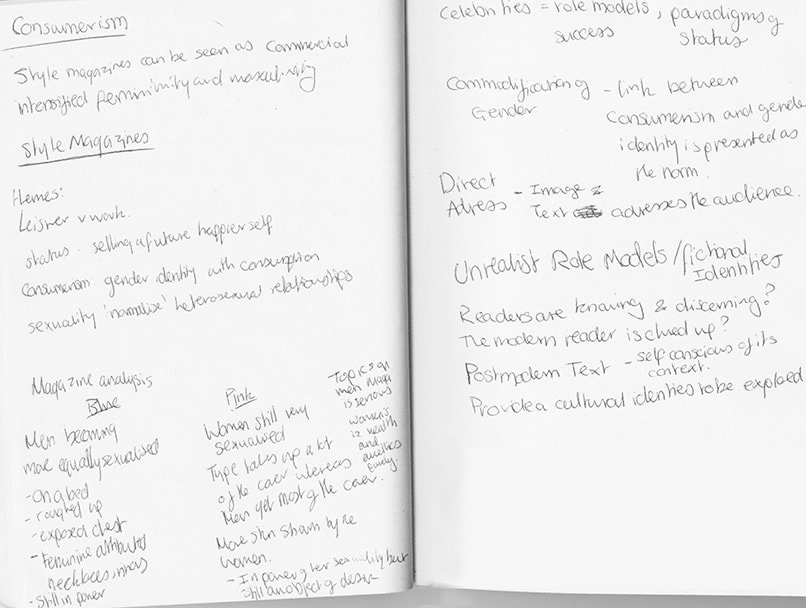 Consumerism
Style magazines can be seen as commercial
intensified femininity and masculinity
Style Magazines
Themes:
Leisure v work.
status. selling a future happier self
Consumerism. gender identity with consumption
sexuality 'normalise' heterosexual relationships
Magazine analysis
Blue
Men becoming
more equally sexualised
- on a bed
- roughed up
- exposed chest
- Feminine attributes
necklaces,
- Still in power
Pink
Women still very
sexualised
Type takes up a lot
of the cover whereas
Men get most of the cover.
More skin shown by the
women.
- In power of her sexuality but
still an object of desire
Topics on
men mags
is serious
women's
is health
and
purely
Celebrities = role models, paradigms of
success status
Commodification of - link between
Gender consumerism and gender
identity is presented as
the norm.
Direct - Image &
Adress Text adresses the audience.
Unrealist Role Models / fictional
Identities
Readers are knowing & discerning?
The modern reader is clued up?
Postmodern Text - self conscious of its
context.
Provide a cultural identies to be explored